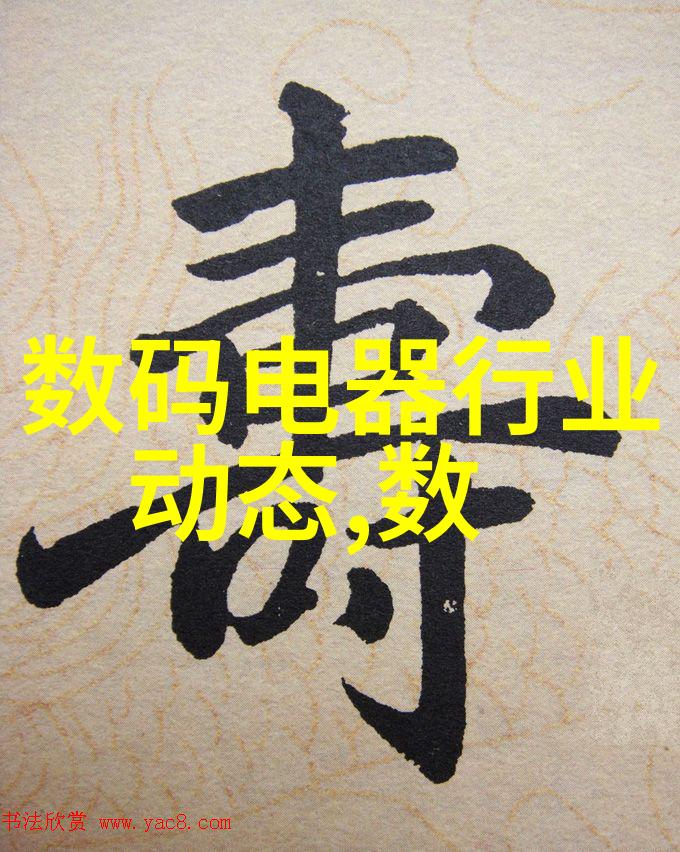 壽
数码电器行业
动态,数
书法欣赏 www.yac8.com